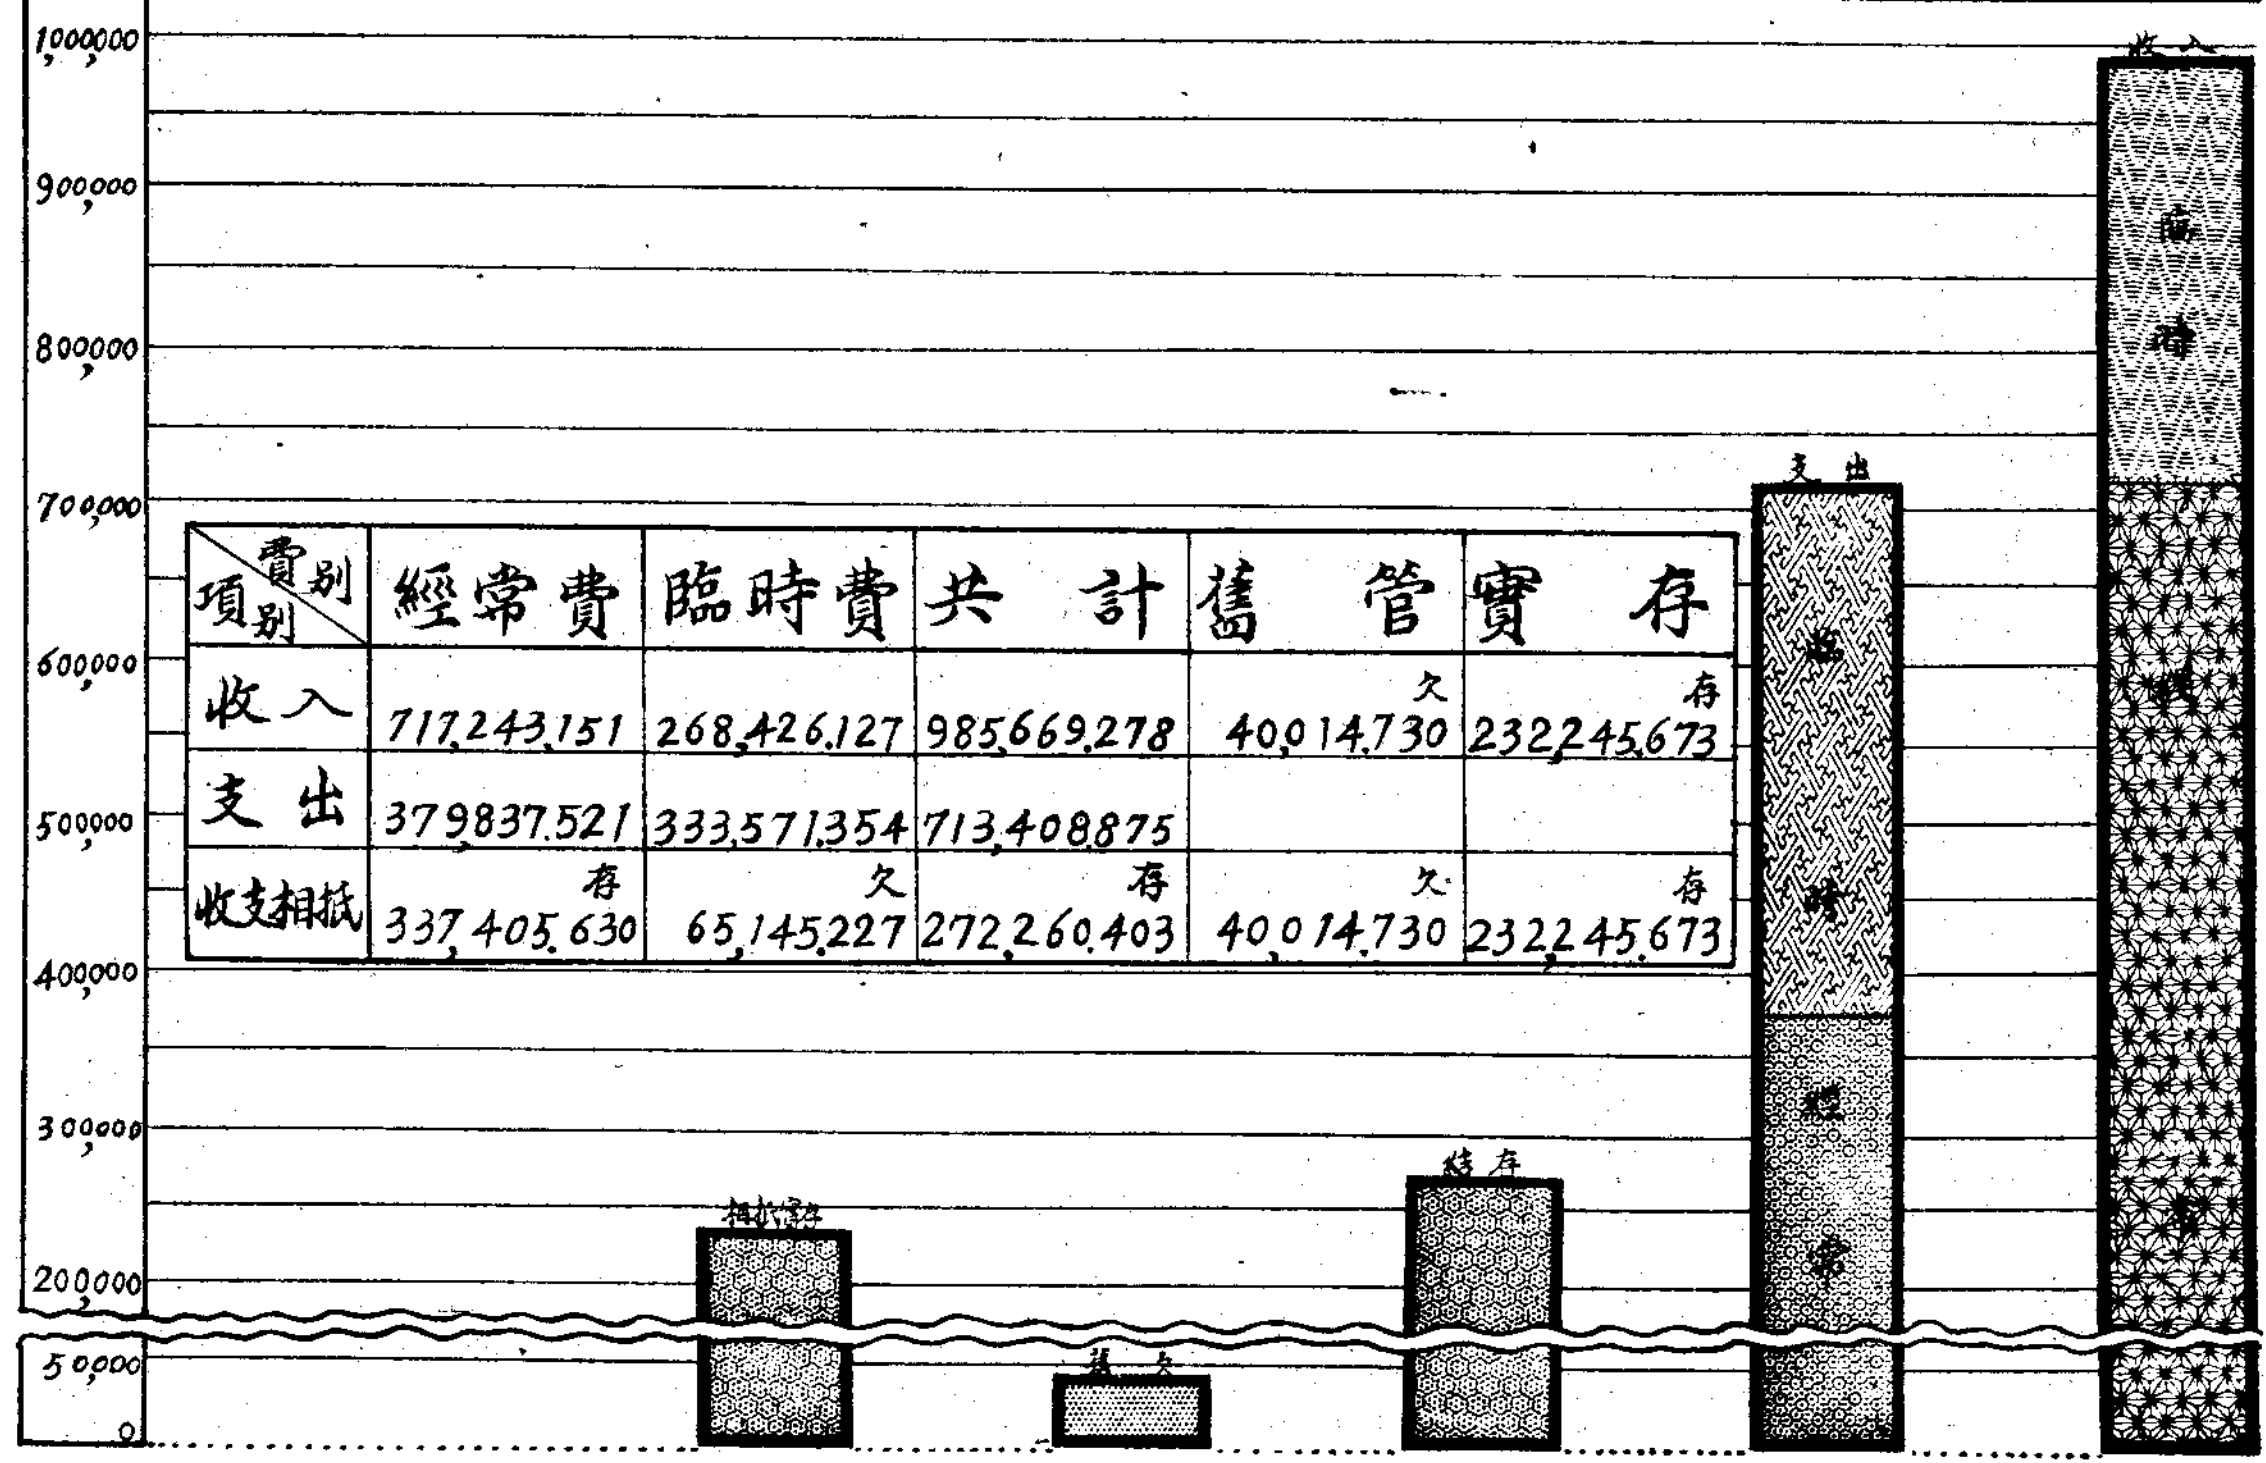 1,000,000
900,000
800,000
700,000
600,000
500,000
400,000
300,000
200,000
50,000
0
費別
項別
經常費 臨時費 共計 舊管 實存
收入 717,243.151 268,426.127 985,669.278 欠 40,014.730 存 232,245.673
支出 379,837.521 333,571.354 713,408.875
收支相抵 存 337,405.630 欠 65,145.227 存 272,260.403 欠 40,014.730 存 232,245.673
相抵實存
舊欠
結存
支出
臨時
經常
收入
臨時
經常